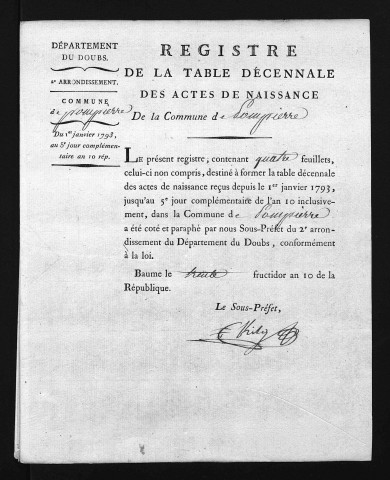 DÉPARTEMENT
DU DOUBS.
2e ARRONDISSEMENT.
COMMUNE
de pompierre
Du 1er janvier 1793,
au 5e jour complémen-
taire an 10 rép.
REGISTRE
DE LA TABLE DÉCENNALE
DES ACTES DE NAISSANCE
De la Commune de Pompierre
LE présent registre, contenant quatre feuillets,
celui-ci non compris, destiné à former la table décennale
des actes de naissance reçus depuis le 1er janvier 1793,
jusqu'au 5e jour complémentaire de l'an 10 inclusive-
ment, dans la Commune de Pompierre
a été coté et paraphé par nous Sous-Préfet du 2e arron-
dissement du Département du Doubs, conformément
à la loi.
Baume le trente fructidor an 10 de la
République.
Le Sous-Préfet,